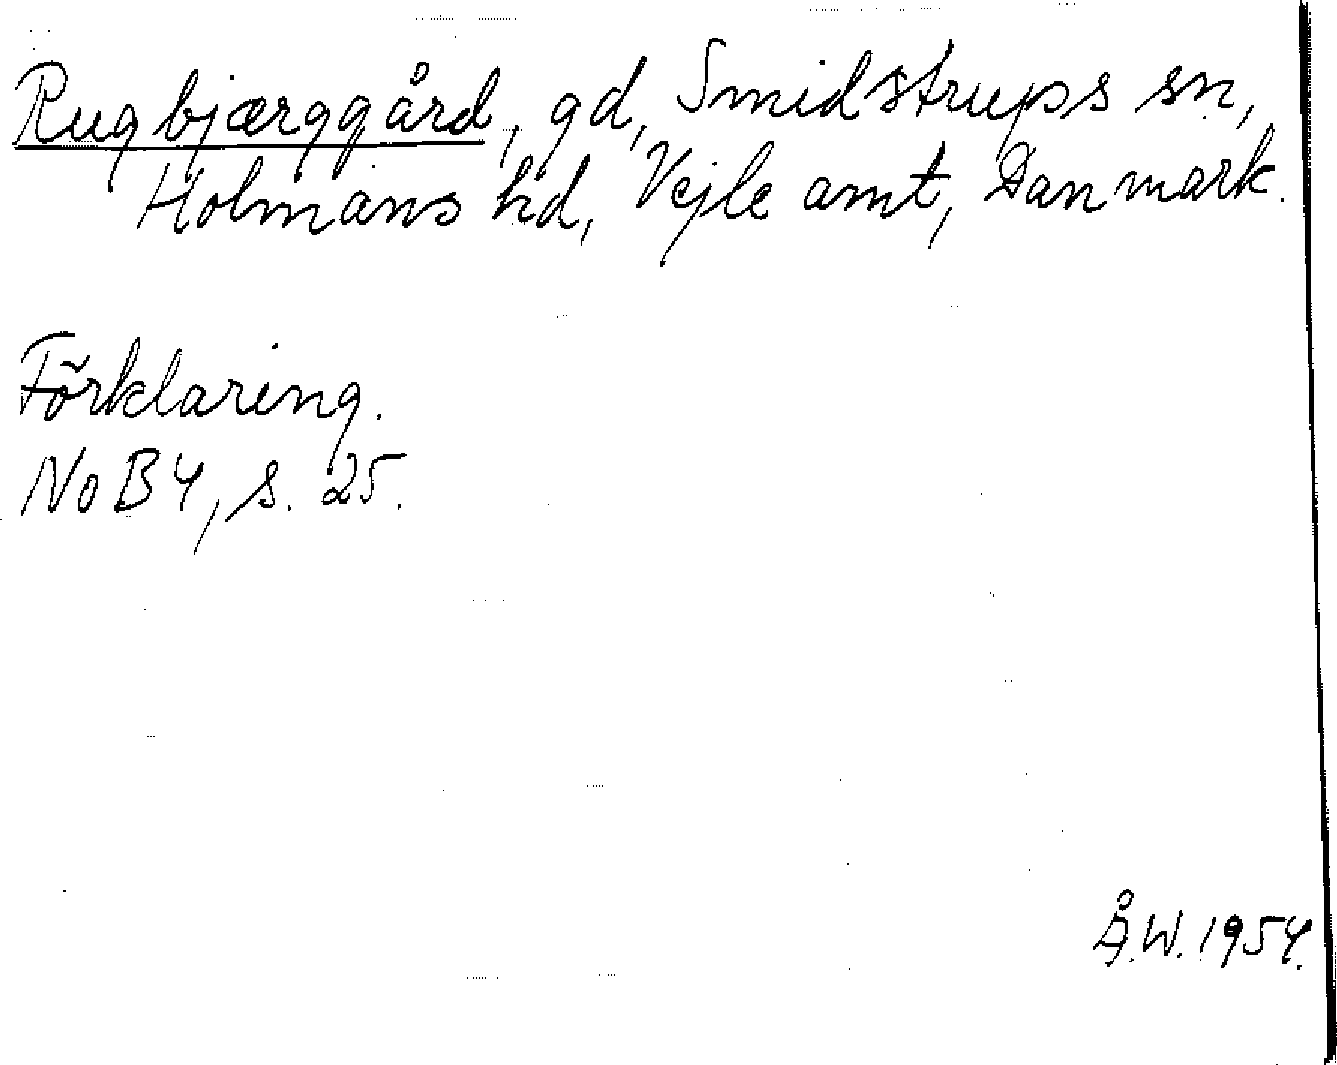 Rugbjærggård, gd, Smidstrups sn,
Holmans hd, Vejle amt, Danmark.
Förklaring.
NoB 4, s. 25.
Å.W. 1954.